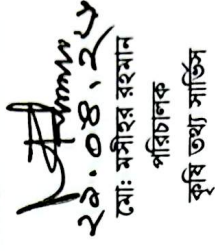 ২৯.০৪.২৫
মোঃ মসীহুর রহমান
পরিচালক
কৃষি তথ্য সার্ভিস